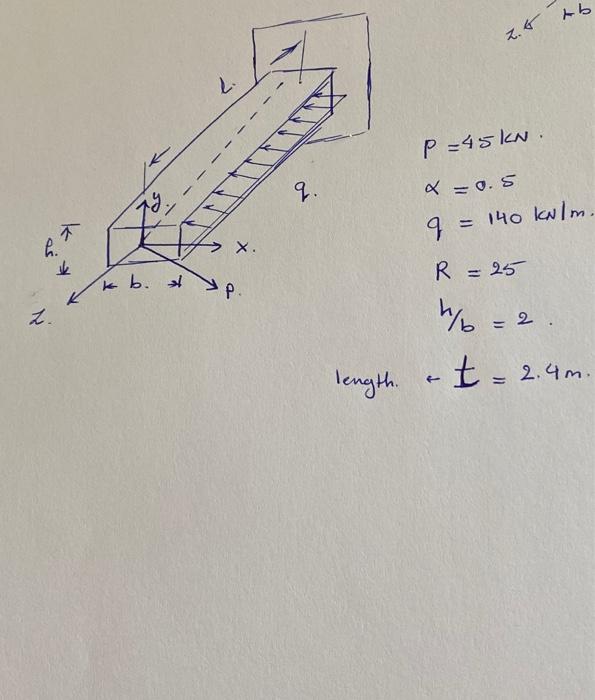 z. b
L.
y.
q.
h.
x.
b.
P.
Z.
P = 45 kN.
α = 0.5
q = 140 kN/m.
R = 25
h/b = 2.
length. ← t = 2.4 m.